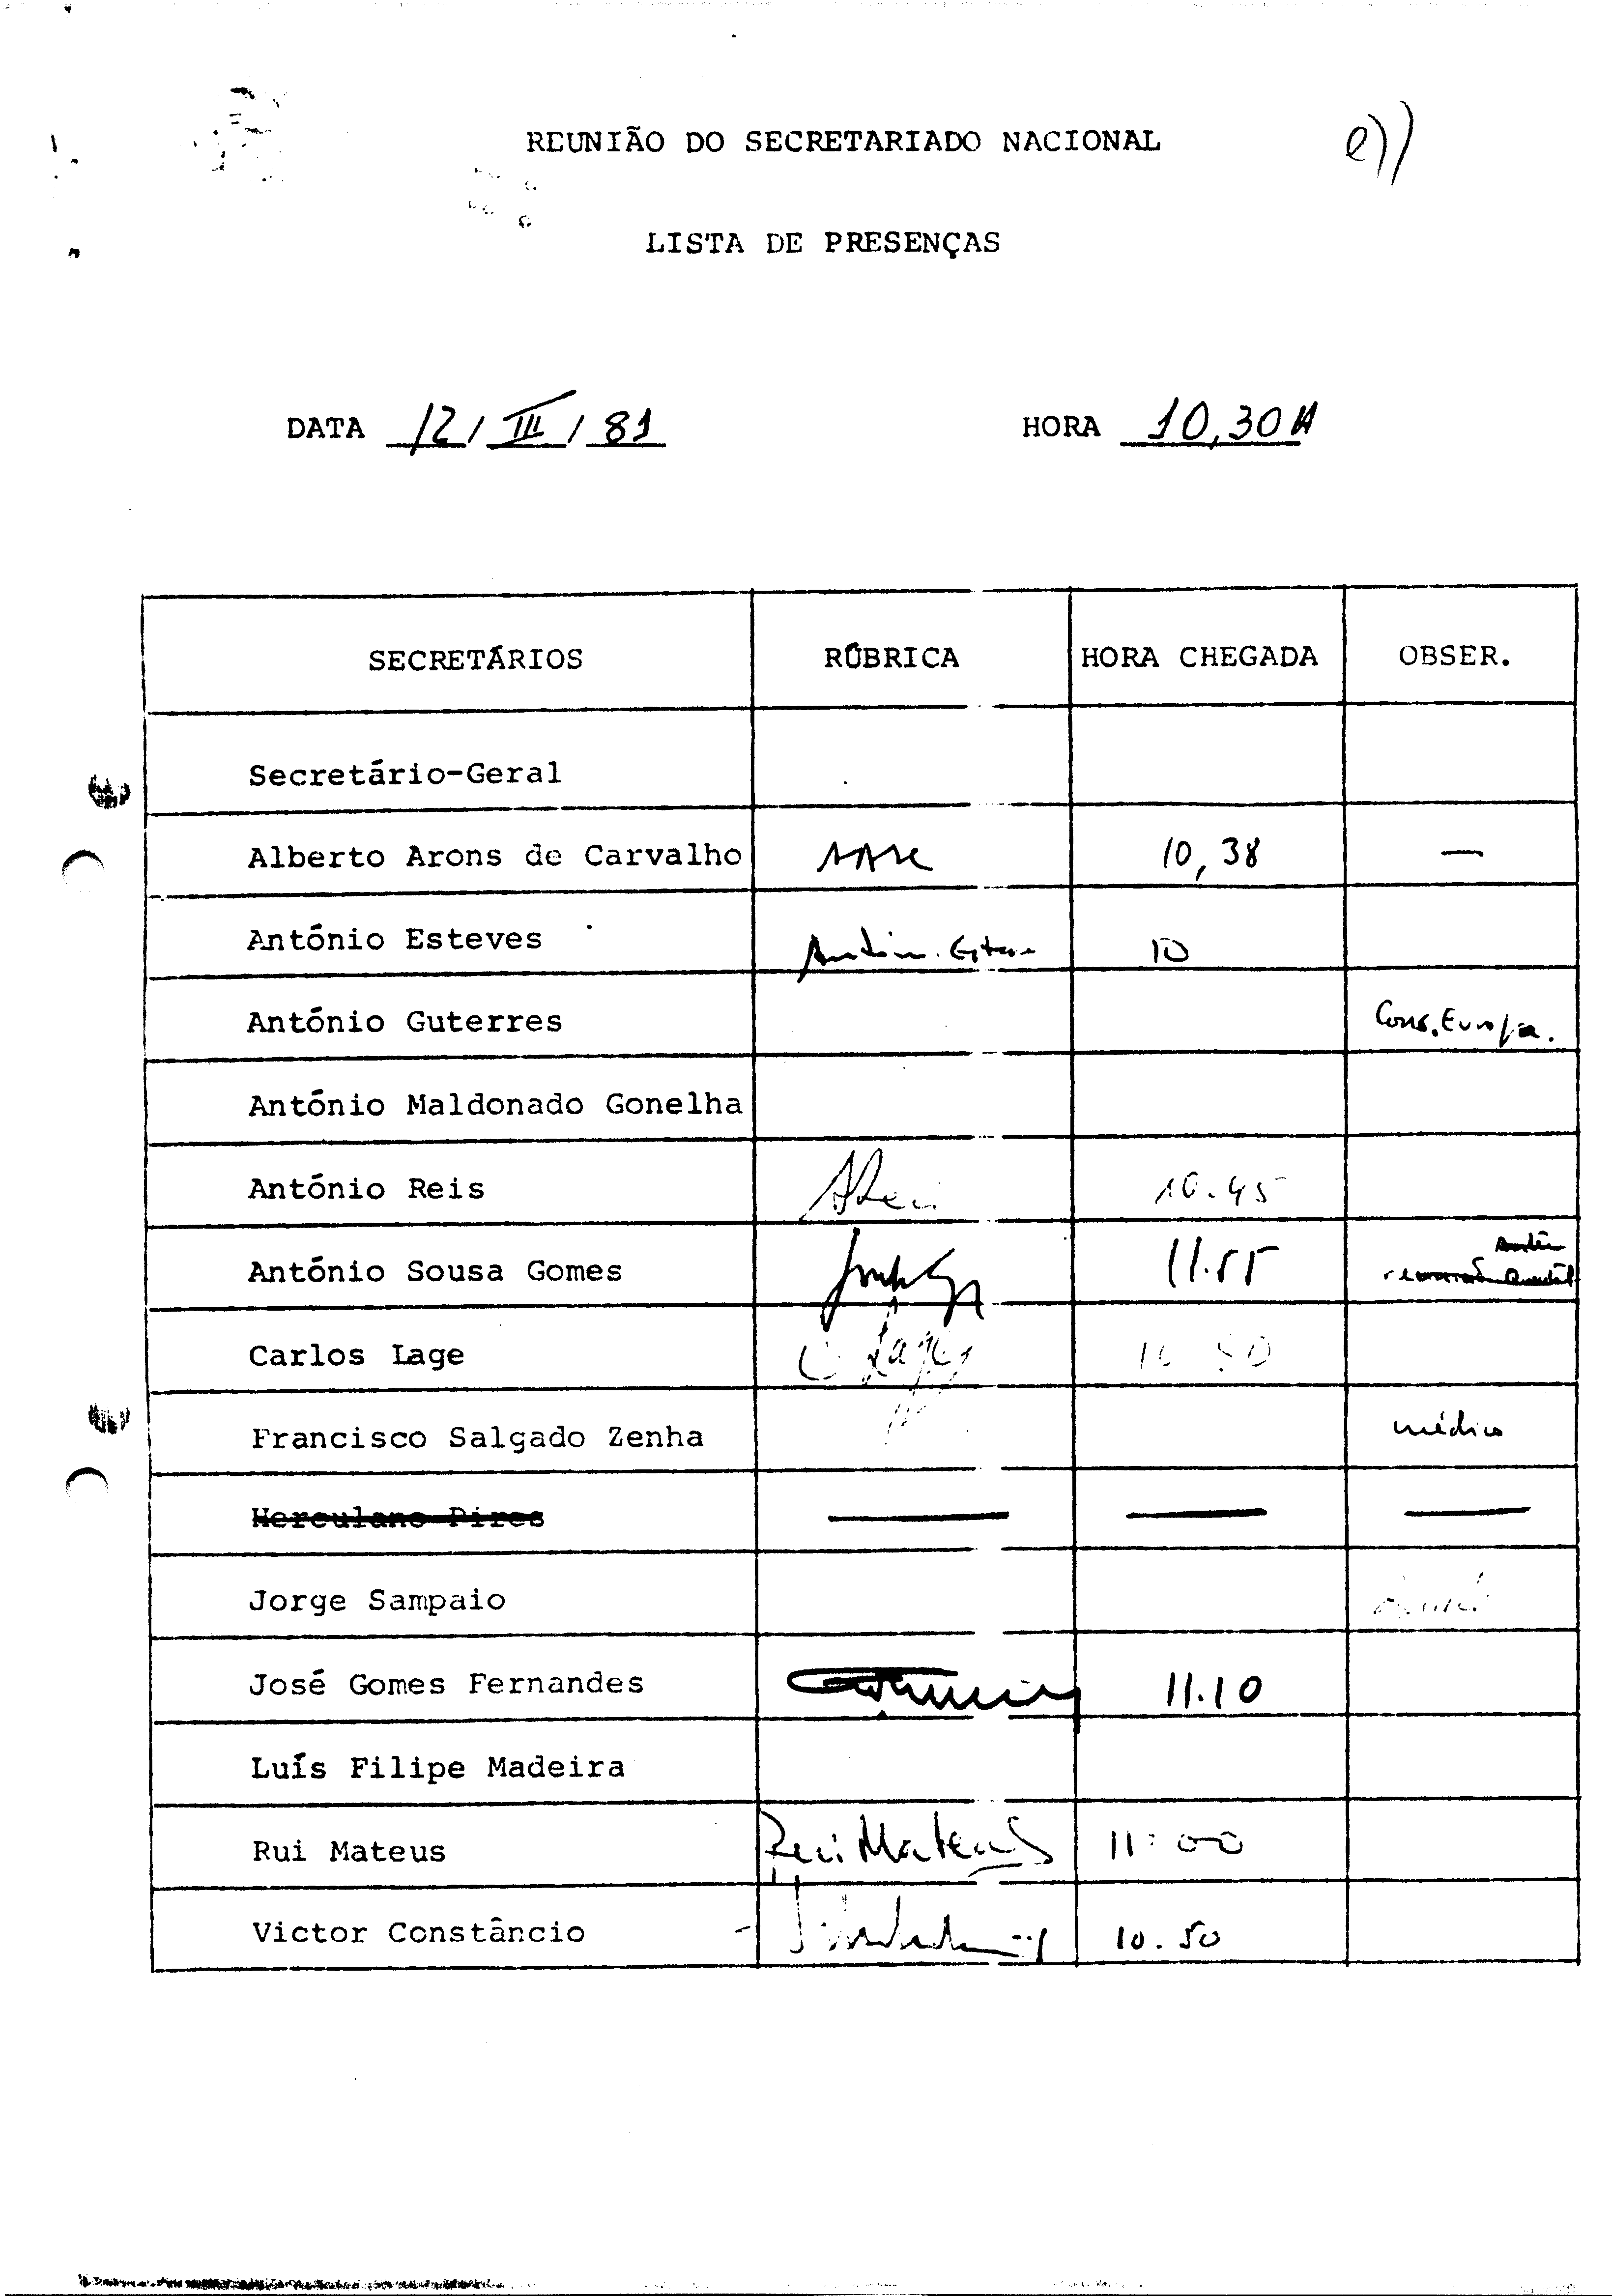 REUNIÃO DO SECRETARIADO NACIONAL e))
LISTA DE PRESENÇAS
DATA 12 / III / 81 HORA 10,30H
SECRETÁRIOS RÚBRICA HORA CHEGADA OBSER.
Secretário-Geral
Alberto Arons de Carvalho 10,38 —
António Esteves 10
António Guterres Cons. Europa.
António Maldonado Gonelha
António Reis AReis 10.45
António Sousa Gomes 11.55
Carlos Lage C Lage
Francisco Salgado Zenha médico
Herculano Pires — — —
Jorge Sampaio
José Gomes Fernandes 11.10
Luís Filipe Madeira
Rui Mateus Rui Mateus 11:00
Victor Constâncio 10.50